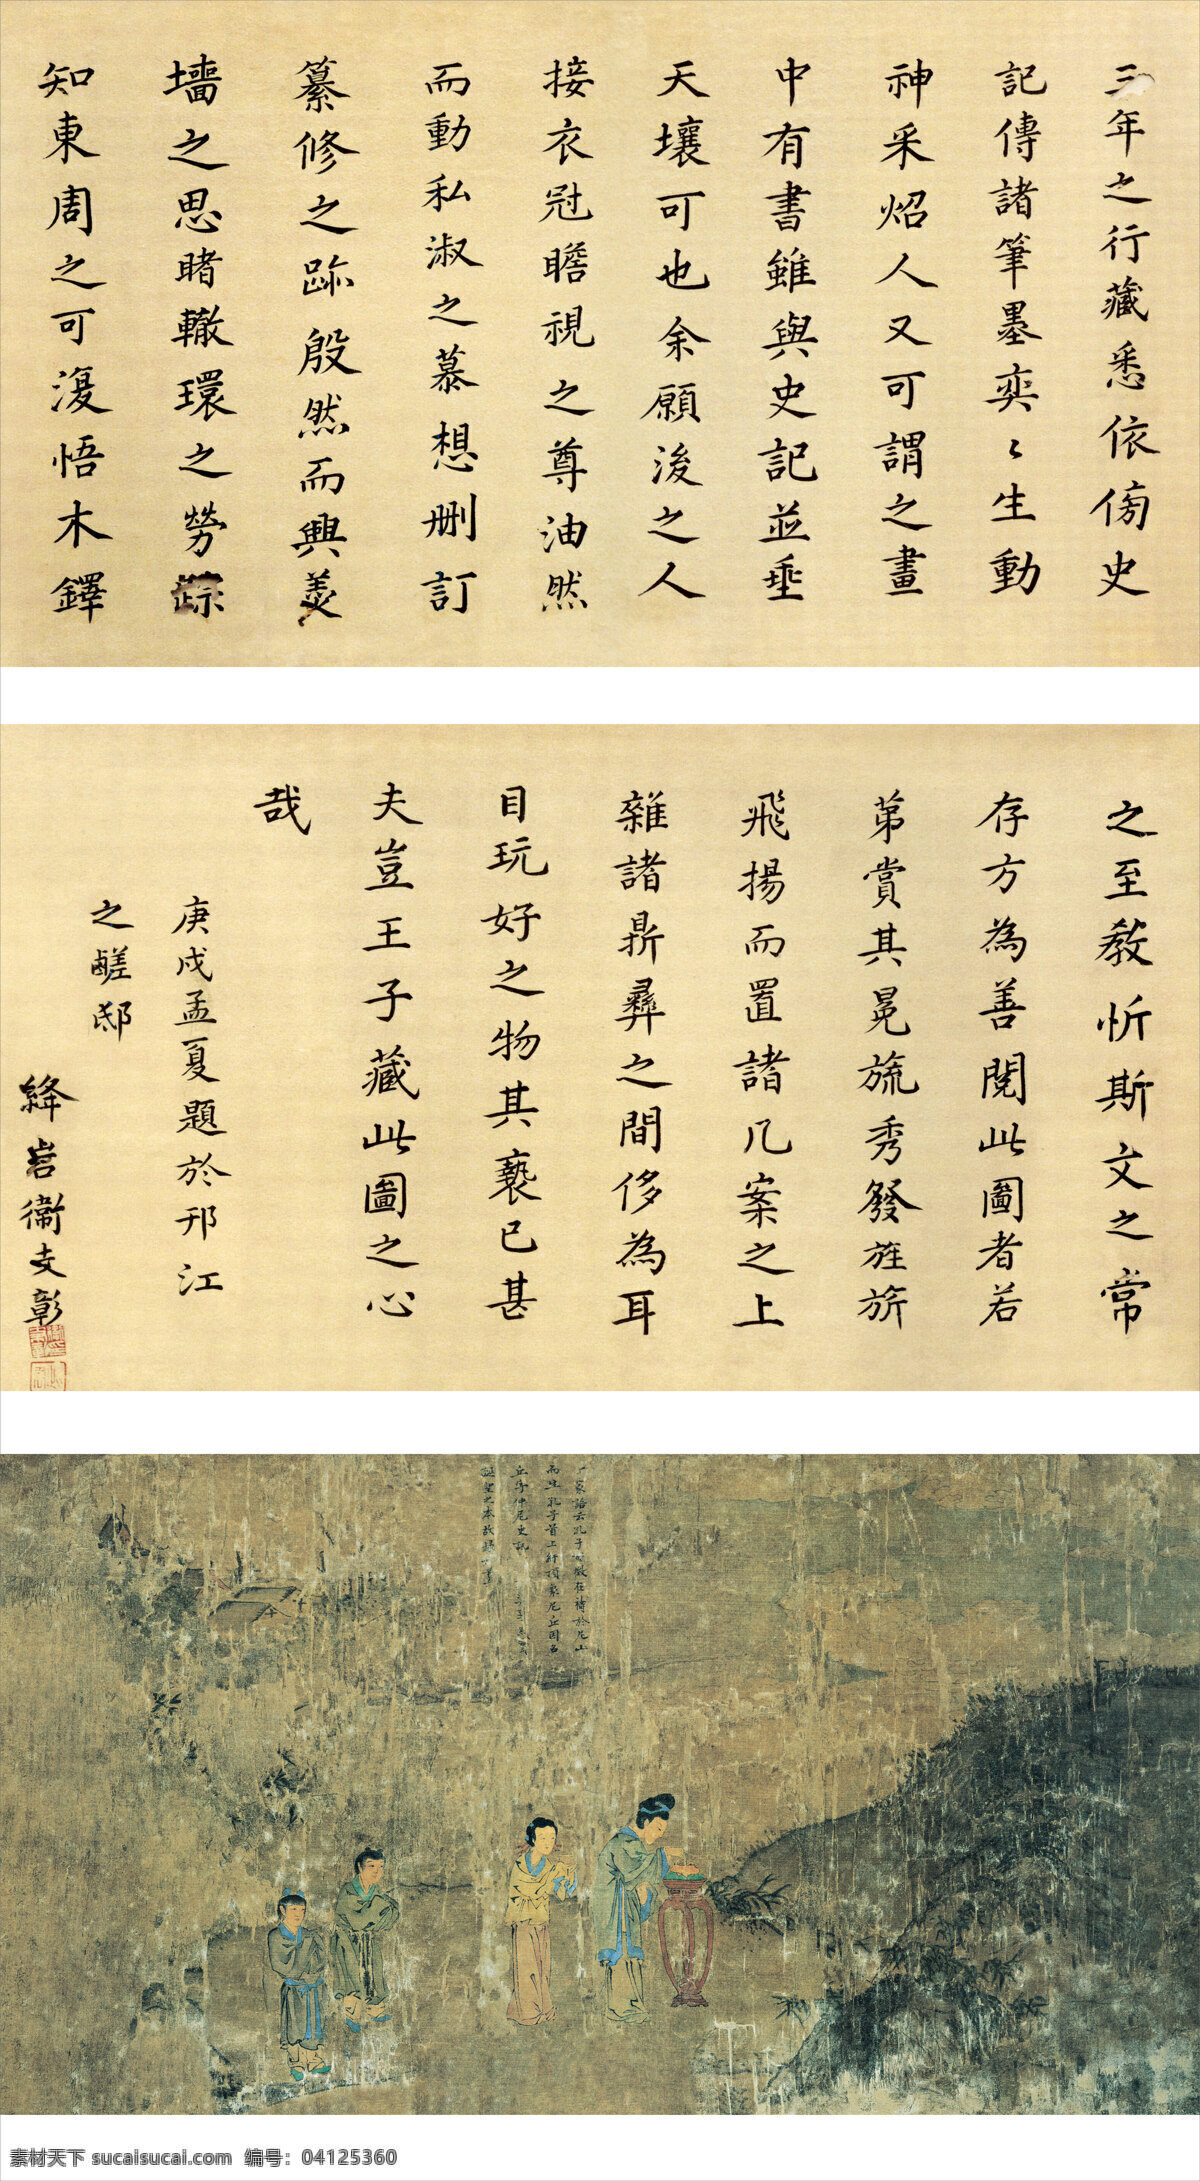 三年之行藏悉依傍史
記傳諸筆墨奕〻生動
神采炤人又可謂之畫
中有書雖與史記並垂
天壤可也余願後之人
接衣冠瞻視之尊油然
而動私淑之慕想刪訂
纂修之跡殷然而興羹
墻之思睹轍環之勞
知東周之可復悟木鐸
之至教忻斯文之常
存方為善閱此圖者若
第賞其冕旒秀發旌旂
飛揚而置諸几案之上
雜諸鼎彞之間侈為耳
目玩好之物其褻已甚
夫豈王子藏此圖之心
哉
庚戌孟夏題於邗江
之鹺邸
絳岩衞支彰
家語云孔子
丘字仲尼史
素材天下 sucaisucai.com 编号：04125360